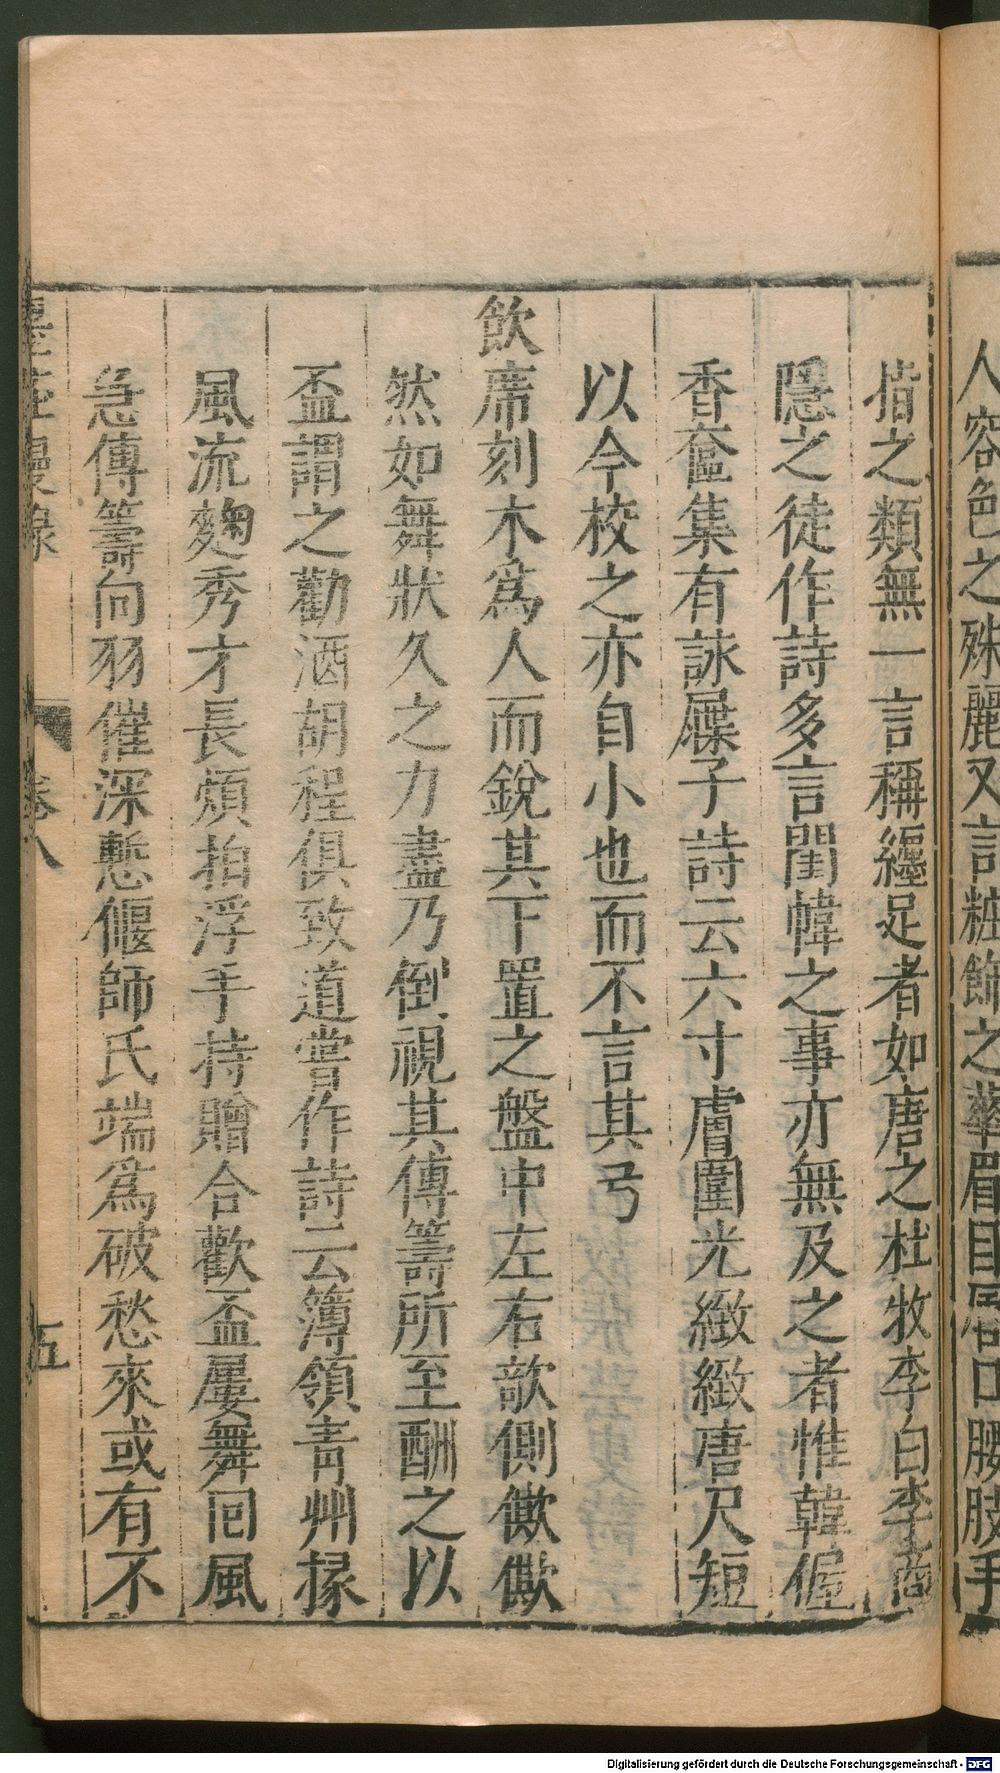 人容色之殊麗又言粧飾之華眉目唇口腰肢手
指之類無一言稱纏足者如唐之杜牧李白李商
隱之徒作詩多言閨幃之事亦無及之者惟韓偓
香奩集有詠屧子詩云六寸膚圍光緻緻唐尺短
以今校之亦自小也而不言其弓
飲席刻木為人而銳其下置之盤中左右欹側僛僛
然如舞狀久之力盡乃倒視其傳籌所至酬之以
盃謂之勸酒胡程俱致道嘗作詩云簿領青州掾
風流麴秀才長煩拍浮手持贈合歡盃屢舞回風
急傳籌向羽催深慙偃師氏端為破愁來或有不
墨莊漫錄 卷八 五
Digitalisierung gefördert durch die Deutsche Forschungsgemeinschaft - DFG